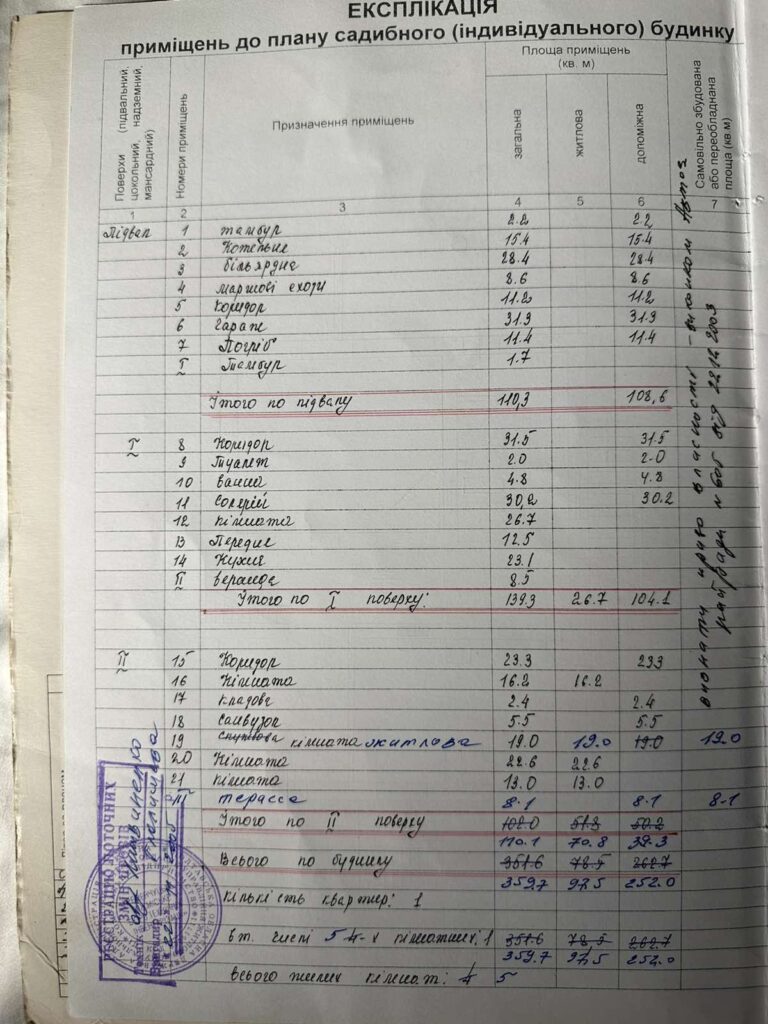 ЕКСПЛІКАЦІЯ
приміщень до плану садибного (індивідуального) будинку
Поверхи (підвальний, цокольний, надземний, мансардний)
Номери приміщень
Призначення приміщень
Площа приміщень (кв. м)
загальна
житлова
допоміжна
Самовільно збудована або переобладнана площа (кв.м)
1 2 3 4 5 6 7
Підвал 1 тамбур 2.2 2.2
2 Котельне 15.4 15.4
3 більярдна 28.4 28.4
4 маршові сходи 8.6 8.6
5 Коридор 11.2 11.2
6 Гараж 31.3 31.3
7 Погріб 11.4 11.4
I Тамбур 1.7
Ітого по підвалу 110,3 108,6
I 8 Коридор 31.5 31.5
9 Туалет 2.0 2.0
10 Ванна 4.8 4.8
11 Солярій 30,2 30.2
12 кімната 26.7
13 Передне 12.5
14 Кухня 23.1
II веранда 8.5
Ітого по I поверху: 139.3 26.7 104.1
II 15 Коридор 23.3 233
16 Кімната 16.2 16.2
17 кладова 2.4 2.4
18 Санвузол 5.5 5.5
19 кімната житлова 19.0 19.0 19.0 19.0
20 Кімната 22.6 22.6
21 кімната 13.0 13.0
III терасса 8.1 8.1 8.1
Ітого по II поверху 102.0 51.8 50.2
110.1 70.8 39.3
Всього по будинку 351.6 78.5 262.7
359.7 97.5 252.0
кількість квартир: 1
в т. числі 5 4-х кімнатних: 1 351.6 78,5 262.7
359.7 97.5 252.0
Всього жилих кімнат: 4 5
визнати право власності - виконком
райради № 605 від 22.12.2003
РЕЄСТРАЦІЮ ПОТОЧНИХ
ЗМІН
Бригадир